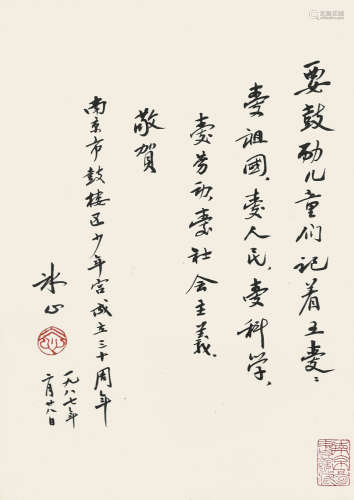 要鼓励儿童们记着五爱：
爱祖國、爱人民、爱科学、
爱劳动、爱社会主義。
敬賀
南京市鼓楼区少年宫成立三十周年
冰心
一九八七年
二月廿八日